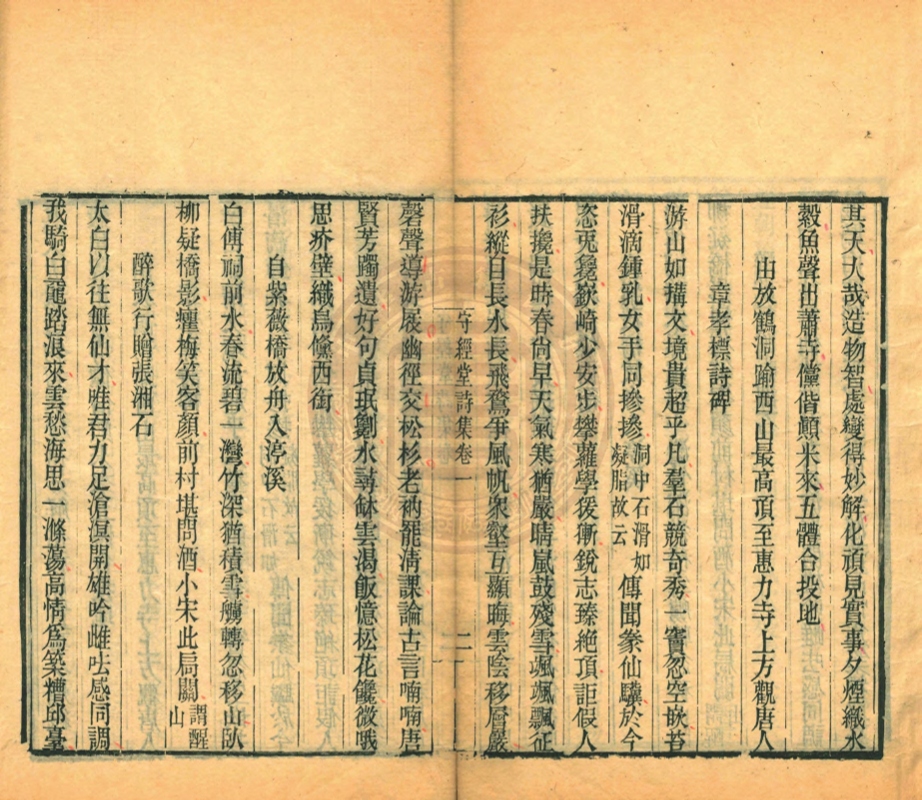 其天大哉造物智處變得妙解化頑見實事夕煙織水
縠魚聲出蕭寺儻偕顛米來五體合投地
由放鶴洞踰西山最高頂至惠力寺上方觀唐人
章孝標詩碑
游山如搆文境貴超乎凡羣石競奇秀一竇忽空嵌苔
滑滴鍾乳女手同摻摻洞中石滑如凝脂故云傳聞豢仙驥於今
恣兎毚嶔崎少安步攀蘿學猨衝銳志臻絶頂詎假人
扶攙是時春尙早天氣寒猶嚴晴嵐鼓殘雪颯颯飄征
衫縱目長水長飛騖爭風帆衆壑互顯晦雲陰移層巖
守經堂詩集卷一 二
磬聲導游屐幽徑交松杉老衲罷淸課論古言喃喃唐
賢芳躅遺好句貞珉劖水尋缽雲渴飯憶松花饞微哦
思疥壁織烏儵西銜
自紫薇橋放舟入渟溪
白傅祠前水春流碧一灣竹深猶積雪舫轉忽移山臥
柳疑橋影癯梅笑客顏前村堪問酒小宋此局關謂醒山
醉歌行贈張湘石
太白以往無仙才唯君力足滄溟開雄吟雌呿感同調
我騎白黿踏浪來雲愁海思一滌蕩高情爲築糟邱臺